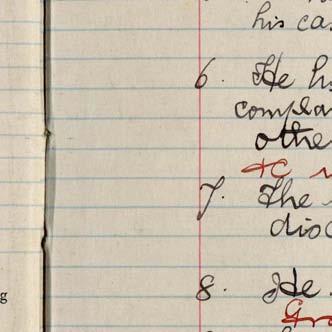 his cas
6. He h
compla
othe
&c
7. The
disc
8. He
Gra
g